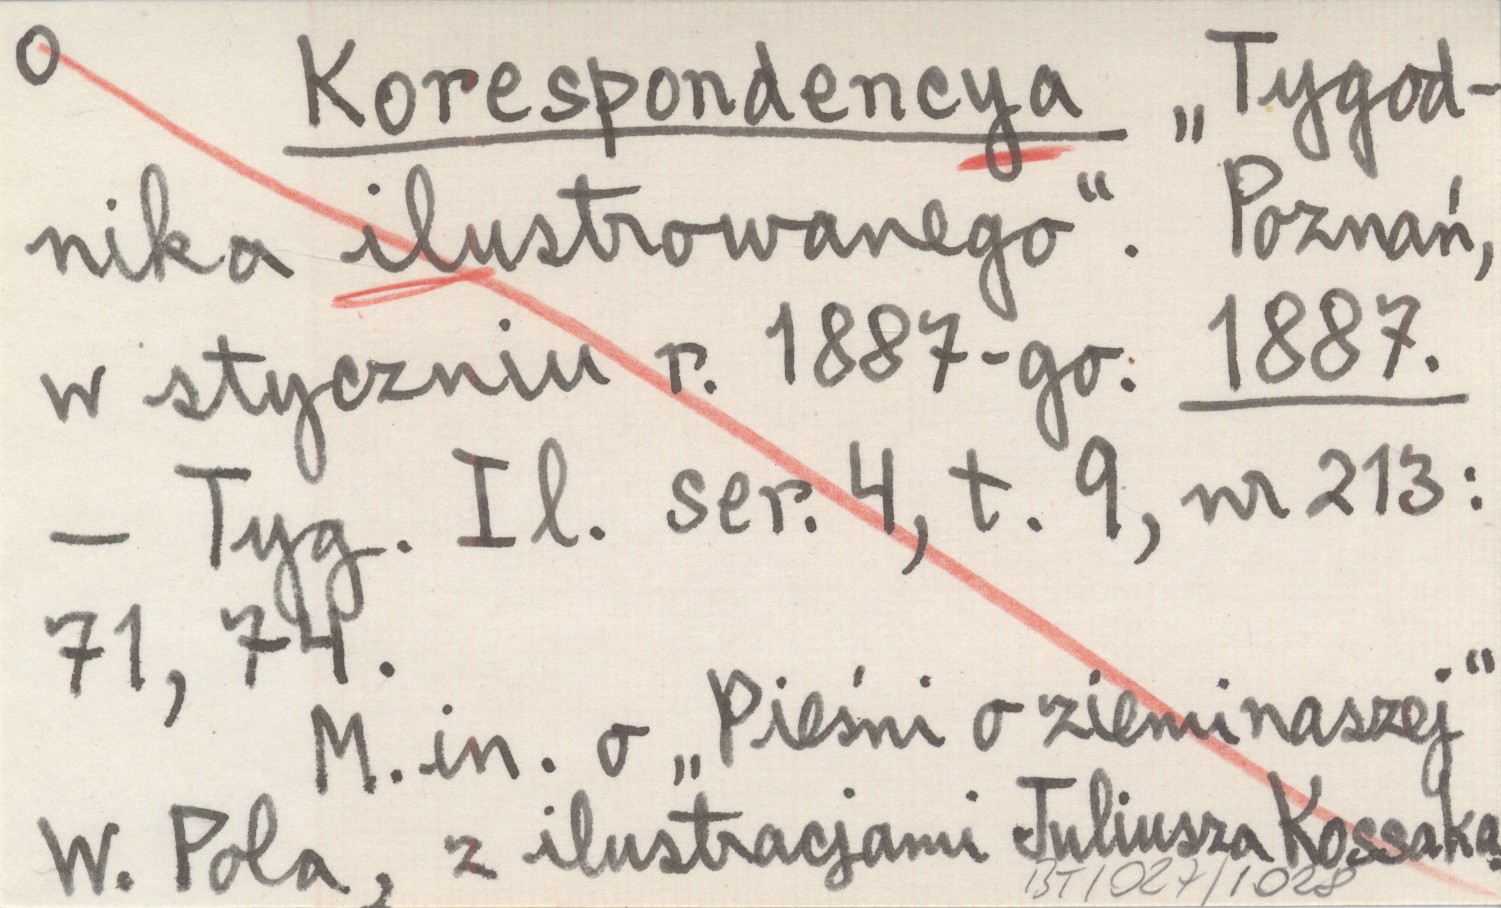 O Korespondencya „Tygod-
nika ilustrowanego“. Poznań,
w styczniu r. 1887-go. 1887.
— Tyg. Il. ser. 4, t. 9, nr 213:
71, 74.
M. in. o „Pieśni o ziemi naszej“
W. Pola, z ilustracjami Juliusza Kossaka.
BT/1027/1028